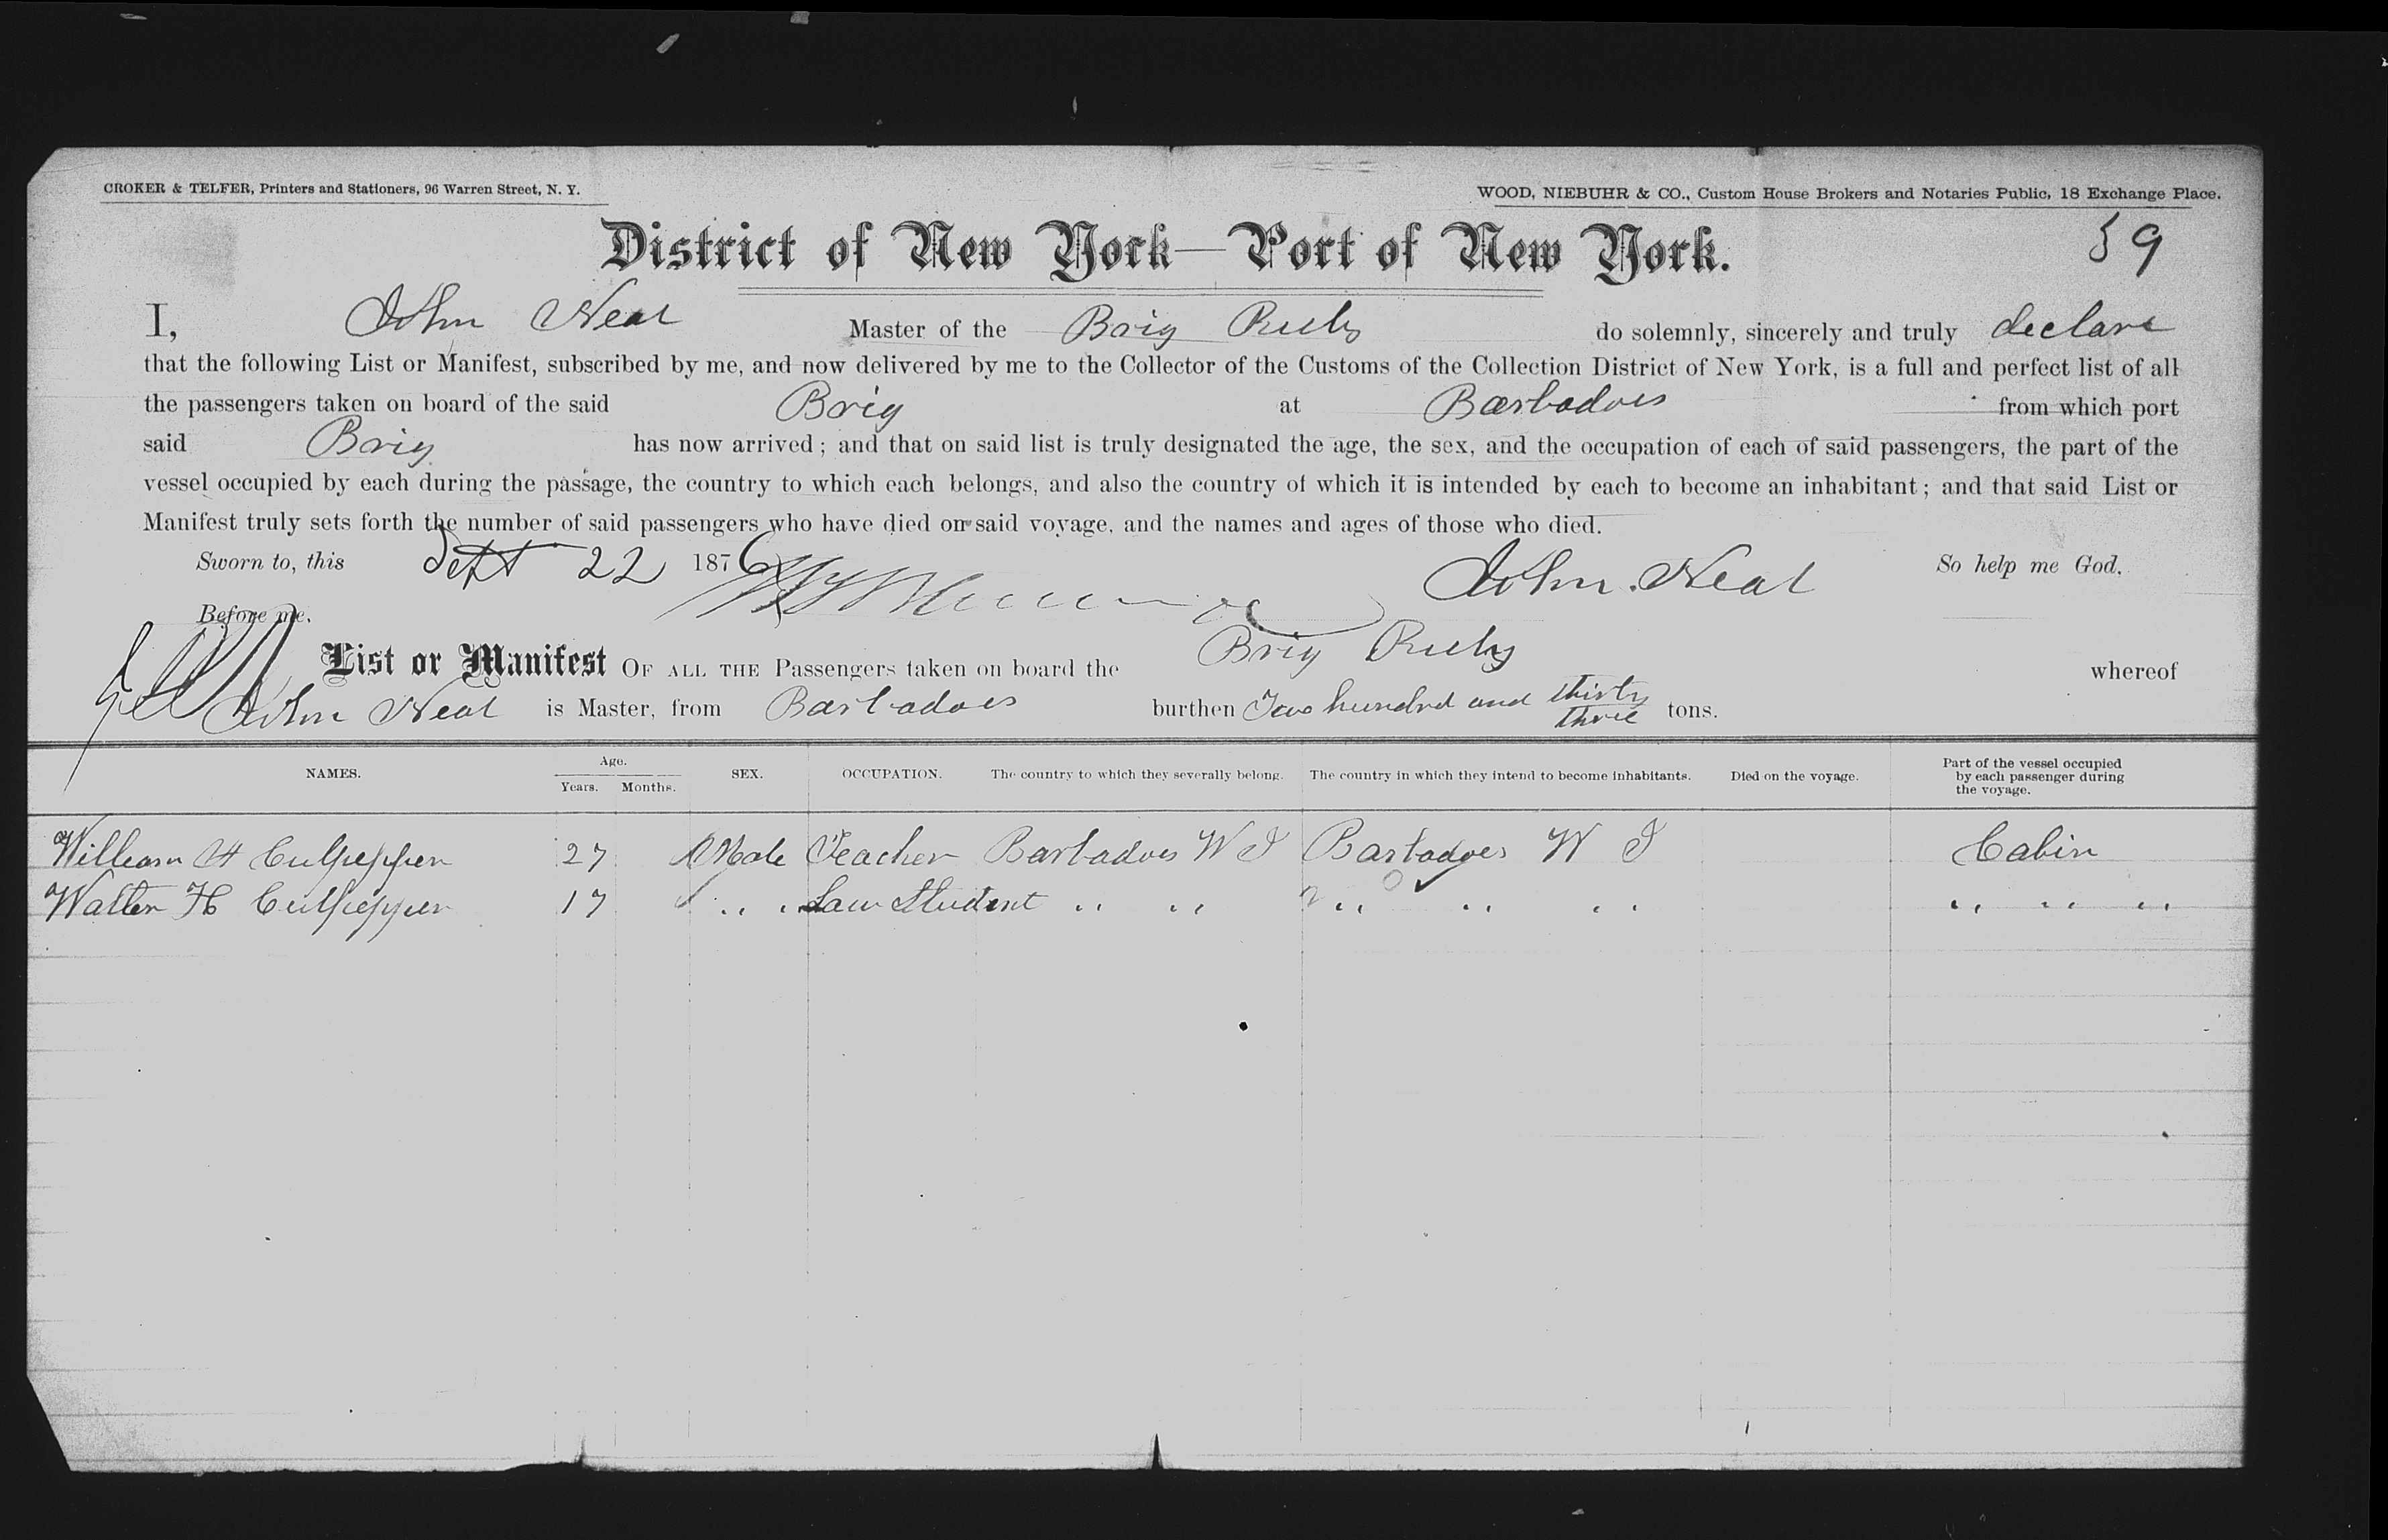 CROKER & TELFER, Printers and Stationers, 96 Warren Street, N. Y.
WOOD, NIEBUHR & CO., Custom House Brokers and Notaries Public, 18 Exchange Place.
District of New York—Port of New York.
59
I, John Neal Master of the Brig Ruby do solemnly, sincerely and truly declare
that the following List or Manifest, subscribed by me, and now delivered by me to the Collector of the Customs of the Collection District of New York, is a full and perfect list of all
the passengers taken on board of the said Brig at Barbadoes from which port
said Brig has now arrived; and that on said list is truly designated the age, the sex, and the occupation of each of said passengers, the part of the
vessel occupied by each during the passage, the country to which each belongs, and also the country of which it is intended by each to become an inhabitant; and that said List or
Manifest truly sets forth the number of said passengers who have died on said voyage, and the names and ages of those who died.
Sworn to, this Sept 22 1876 John Neal So help me God.
Before me.
List or Manifest OF ALL THE Passengers taken on board the Brig Ruby whereof
John Neal is Master, from Barbadoes burthen Two hundred and thirty three tons.
NAMES. Age. Years. Months. SEX. OCCUPATION. The country to which they severally belong. The country in which they intend to become inhabitants. Died on the voyage. Part of the vessel occupied by each passenger during the voyage.
William H Culpepper 27 Male Teacher Barbadoes W I Barbadoes W I Cabin
Walter H Culpepper 17 " " Law Student " " " " " " " "